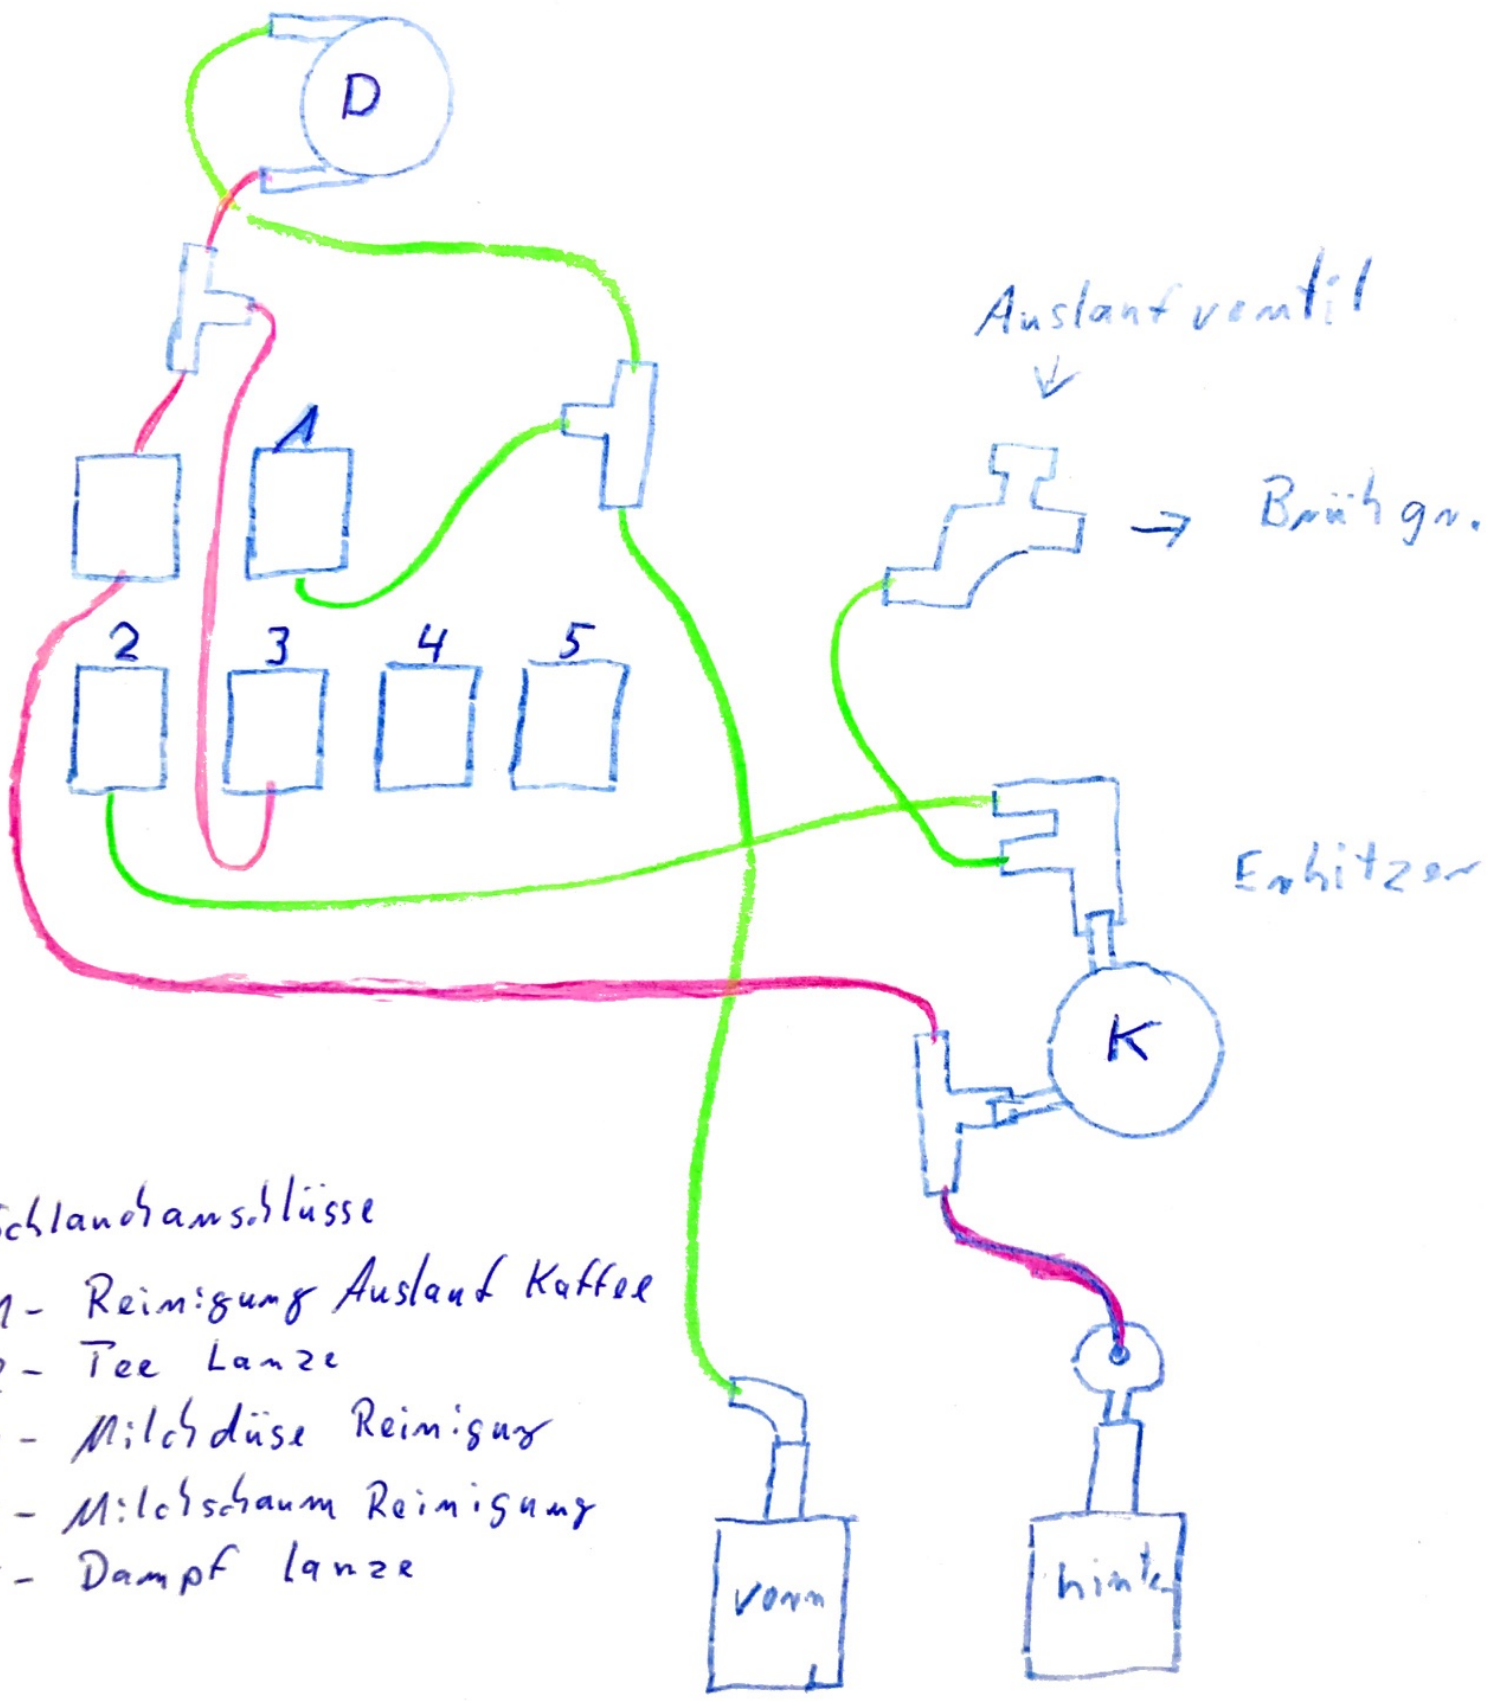 D
Auslaufventil
↓
→ Brühgr.
1
2 3 4 5
Erhitzer
K
Schlauchanschlüsse
1 - Reinigung Auslauf Kaffee
2 - Tee Lanze
- Milchdüse Reinigug
- Milchschaum Reinigung
- Dampf lanze
vorn
hinten